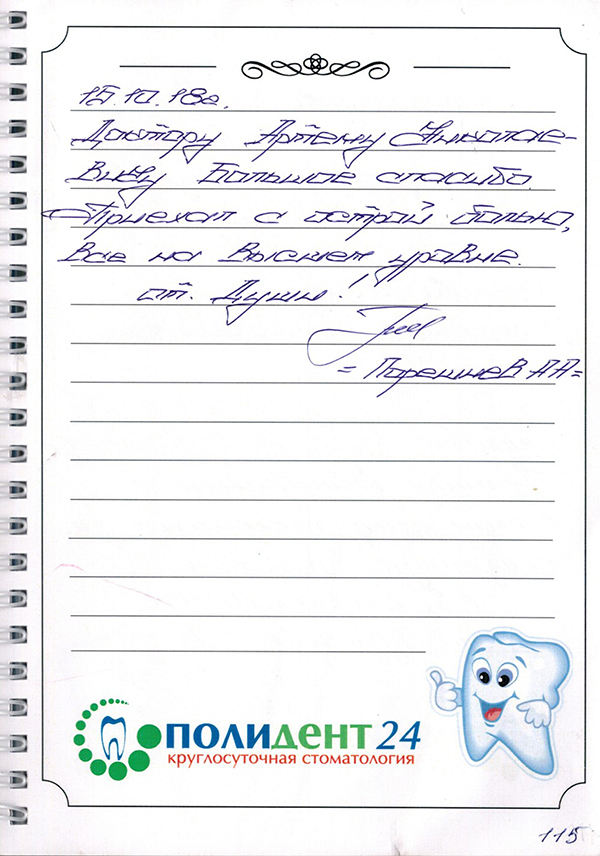 15.10.18г.
Доктору Артему Николае-
Вичу Большое спасибо.
Приехал с острой болью,
Все на Высшем уровне.
от. Души!
= Порешнев АА=
ПОЛИДЕНТ 24
круглосуточная стоматология
115